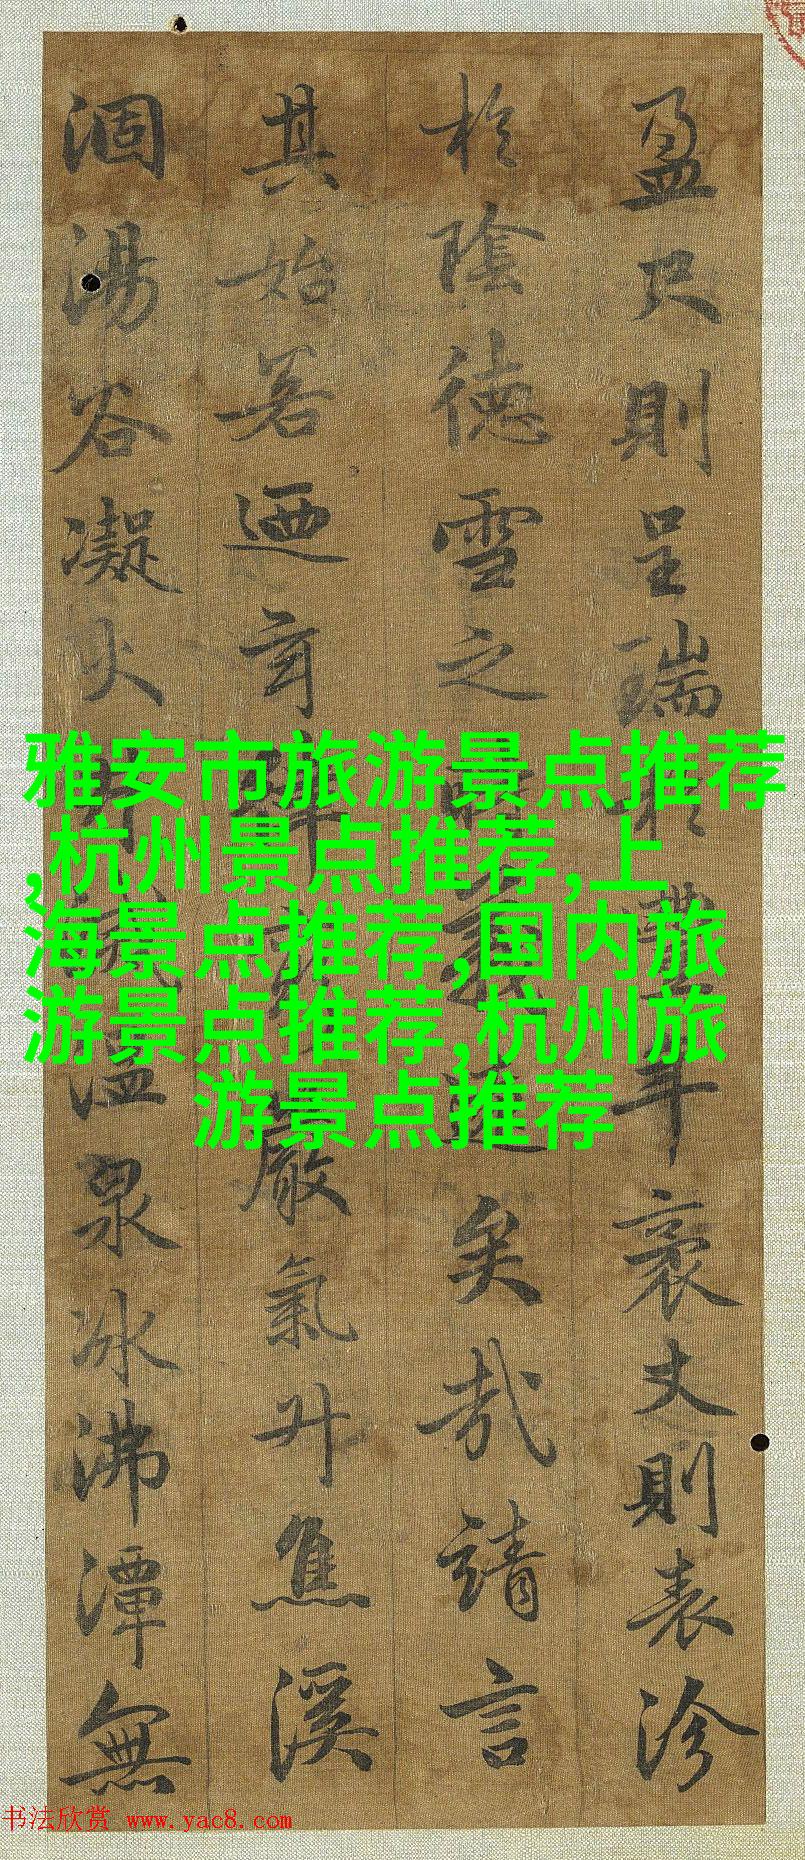 盈尺則呈瑞於豐年袤丈則表沴
於陰德雪之時義矣哉請言
其始若迺玄嚴氣升焦溪
涸湯谷凝火溫泉冰沸潭無
雅安市旅游景点推荐
,杭州景点推荐,上
海景点推荐,国内旅
游景点推荐,杭州旅
游景点推荐
书法欣赏 www.yac8.com